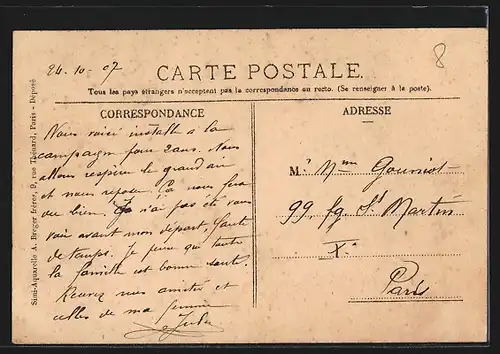 24.10-07
8
CARTE POSTALE.
Tous les pays étrangers n'acceptent pas la correspondance au recto. (Se renseigner à la poste).
CORRESPONDANCE
Nous voici installé à la
campagne pour 2 ans. Nous
allons respirer le grand air
et nous reposer. Ça nous fera
du bien. Je n'ai pas été vous
voir avant mon départ, faute
de temps. Je pense que toute
la famille est bonne santé.
Recevez mes amitiés et
celles de ma femme
Jules
ADRESSE
M. Gourriot
99 fg St Martin
X.e
Paris
Simi-Aquarelle A. Breger frères, 9, rue Thénard, Paris - Déposé